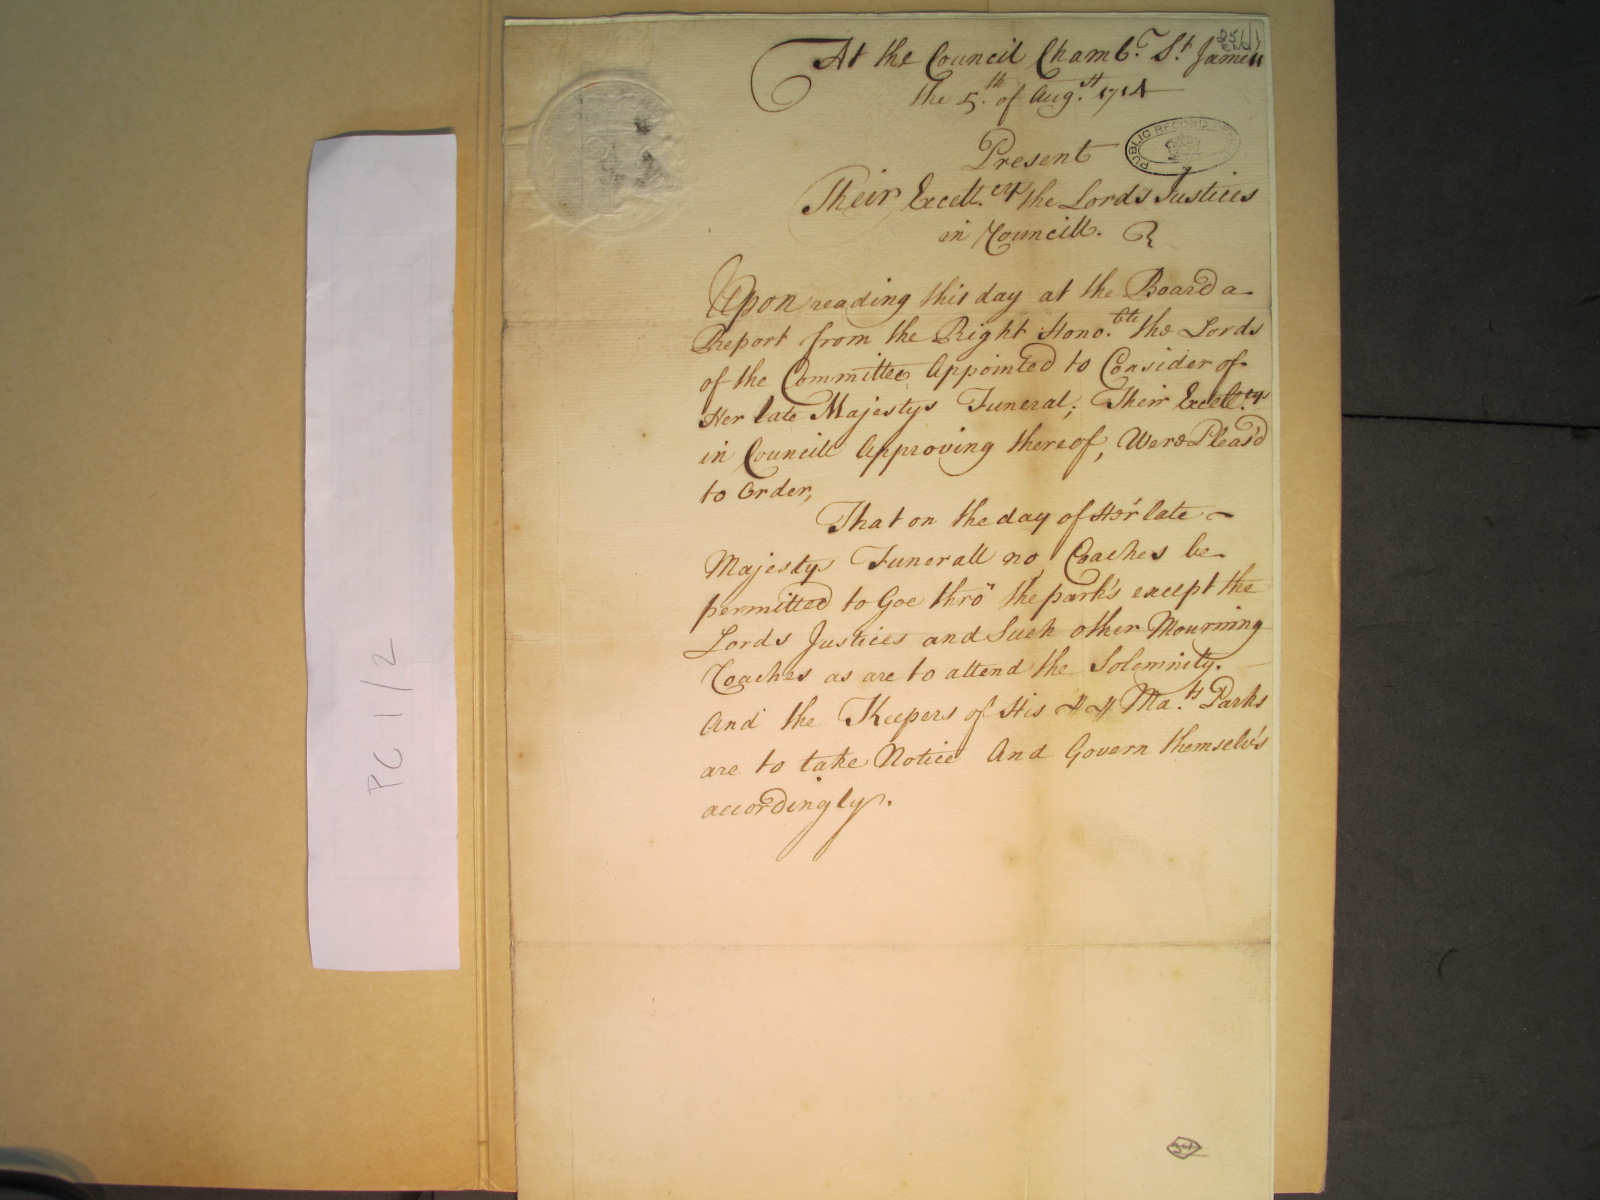 At the Council Chamb.r St. James
the 5.th of Aug.st 1714
Present
PUBLIC RECORD
Their Excell.cys the Lords Justices
in Councill.
Upon reading this day at the Board a
Report from the Right Hono.ble the Lords
of the Committee Appointed to Consider of
Her late Majestys Funeral; Their Excell.cys
in Councill Approving thereof, Were Pleas'd
to Order,
That on the day of Her late
Majestys Funerall no Coaches be
permitted to Goe thrö the park's except the
Lords Justices and Such other Mourning
Coaches as are to attend the Solemnity.
And the Keepers of His Ma.ts Parks
are to take Notice And Govern themselv's
accordingly.
PC 1/2